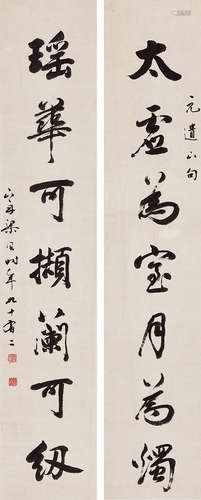 太虛為室月為燭
元遺山句
瑤華可擷蘭可紉
山舟梁同書年九十有二